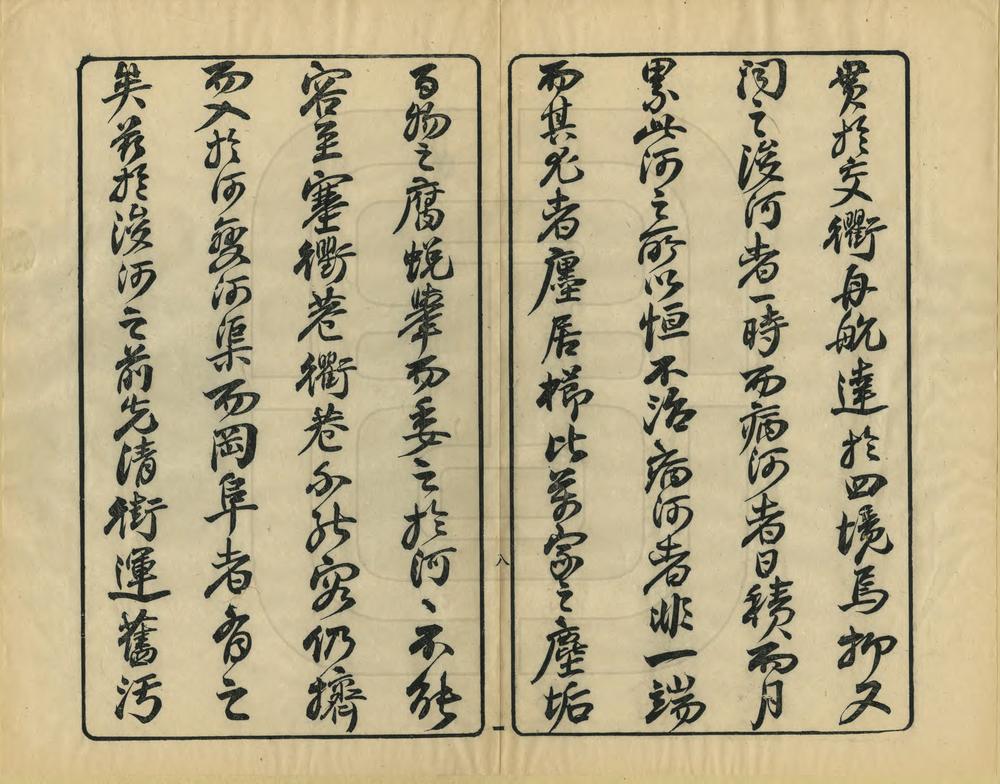 貫於交衢舟航達於四境焉抑又
聞之浚河者一時而病河者日積而月
累此河之所以恒不治病河者非一端
而其尤者廛居櫛比萬家之塵垢
百物之腐蛻舉而委之於河〻不能
容至塞衢巷衢巷不能容仍擠
而入於河變河渠而岡阜者有之
矣茲於浚河之前先清街運舊污
八